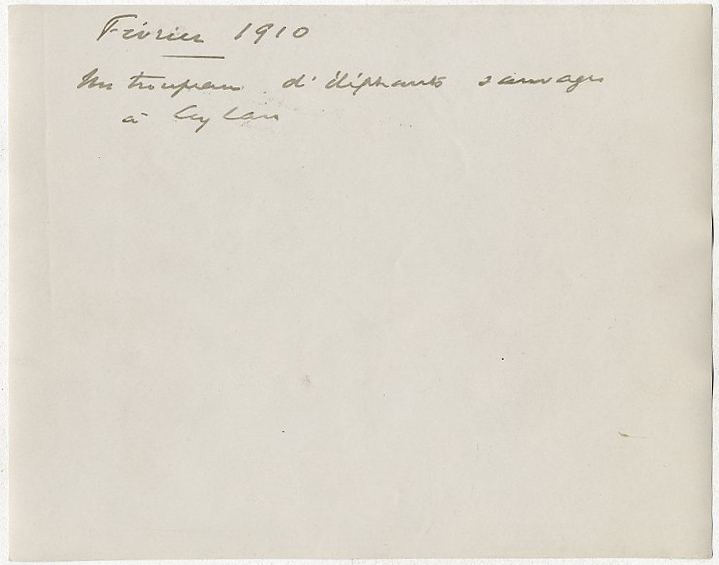 Février 1910
Un troupeau d'éléphants sauvages
à Ceylan